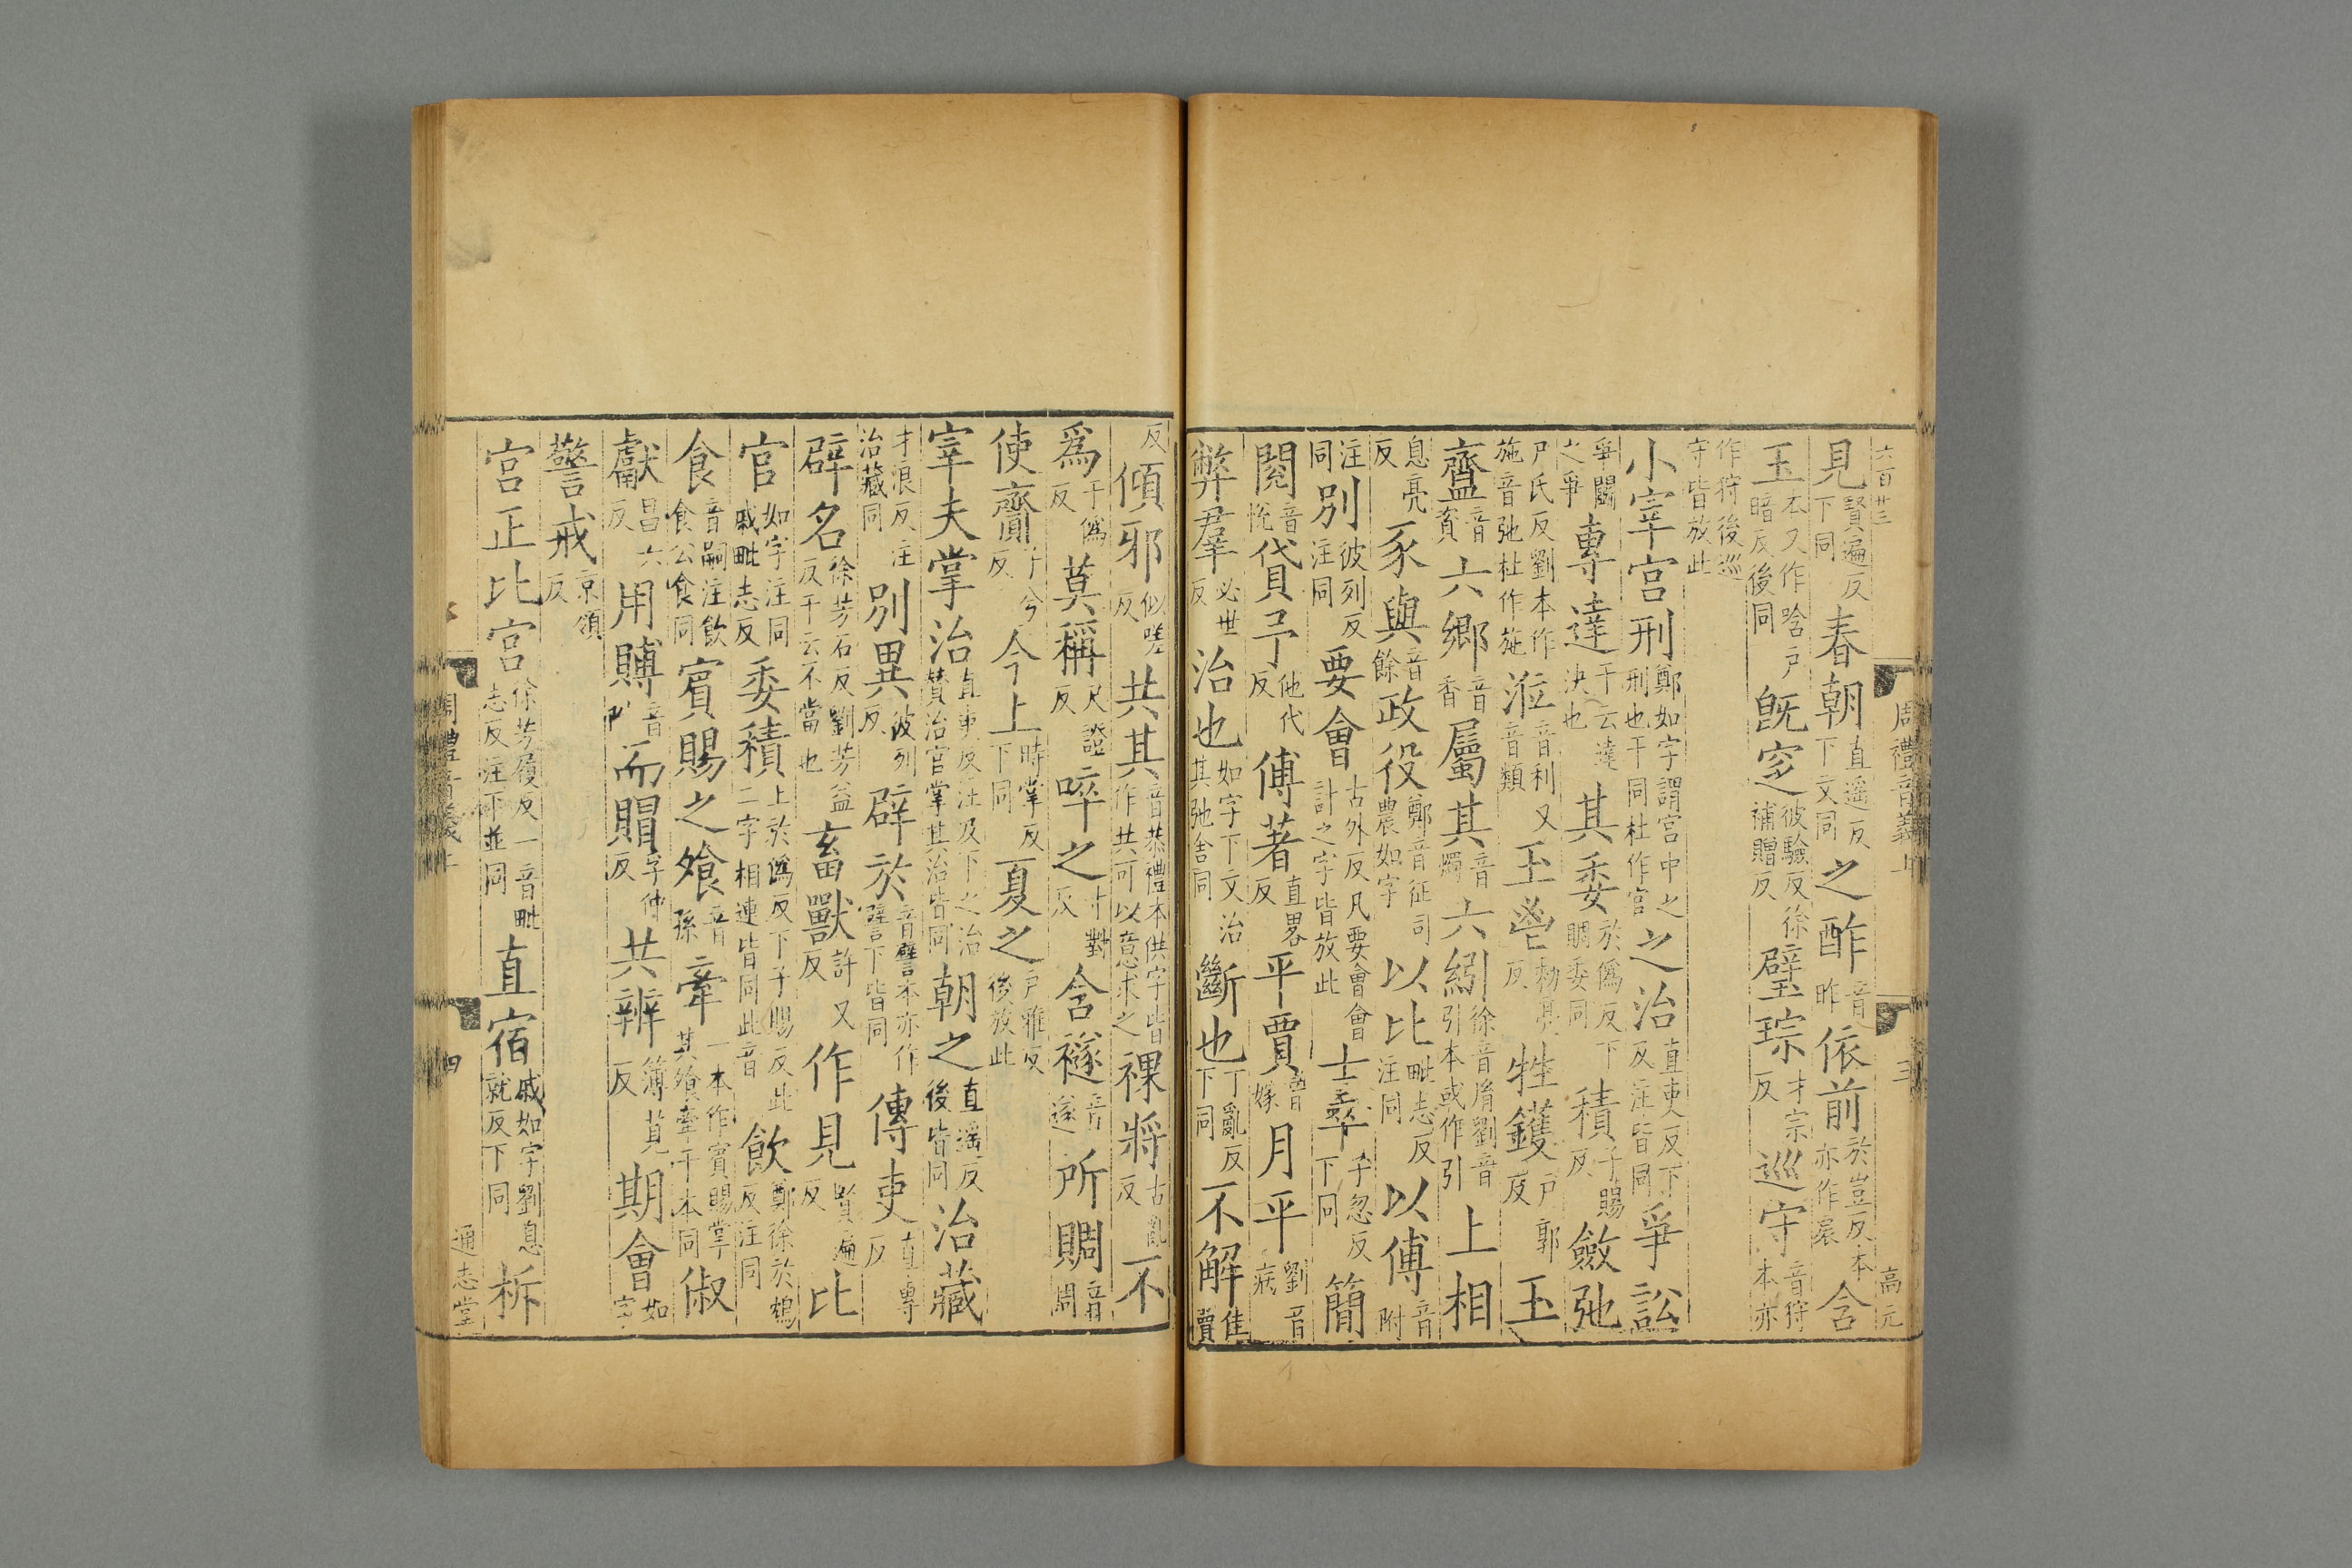 六百廿三 周禮音義上 三 高元
見賢遍反下同春朝直遥反下文同之酢音昨依前於豈反本亦作扆含
玉本又作唅户暗反後同既窆彼驗反徐補贈反璧琮才宗反巡守音狩本亦
作狩後巡守皆放此
小宰宫刑鄭如字謂宫中之刑也干同杜作官之治直吏反下及注皆同爭訟
爭鬭之爭專達干云達決也其委於僞反下賙委同積子賜反斂弛
尸氏反劉本作施音弛杜作施涖音利又音類玉鬯勑亮反牲鑊户郭反玉
齍音資六鄉音香屬其音燭六紖徐音胤劉音引本或作引上相
息亮反豕與音餘政役鄭音征司農如字以比毗志反注同以傅音附
注同别彼列反注同要會古外反凡要會會計之字皆放此士卒子忽反下同簡
閱音恱貸予他代反傅著直畧反平賈音嫁月平劉音病
弊羣必世反治也如字下文治其弛舍同斷也丁亂反下同不解佳賣
反傾邪似嗟反共其音恭禮本供字皆作共可以意求之祼將古亂反不
爲于僞反莫稱尺證反啐之寸對反含襚音遂所賙音周
使齎子兮反今上時掌反下同夏之户雅反後放此
宰夫掌治直吏反注及下之治賛治官掌其治皆同朝之直遥反後皆同治藏
才浪反注治藏同别異彼列反辟於音譬本亦作譬下皆同傳吏直專反
辟名徐芳石反劉芳益反干云不當也畜獸許又反作見賢遍反比
官如字注同戚毗志反委積上於僞反下子賜反此二字相連皆同此音飲鄭徐於鴆反注同
食音嗣注飲食公食同賓賜之飧音孫牽一本作賓賜掌其飧牽干本同俶
獻昌六反用賻音附而賵芳仲反共辨薄莧反期會如字
警戒京領反
宫正比宫徐芳履反一音毗志反注下並同直宿戚如字劉息就反下同柝
周禮音義上 四 通志堂